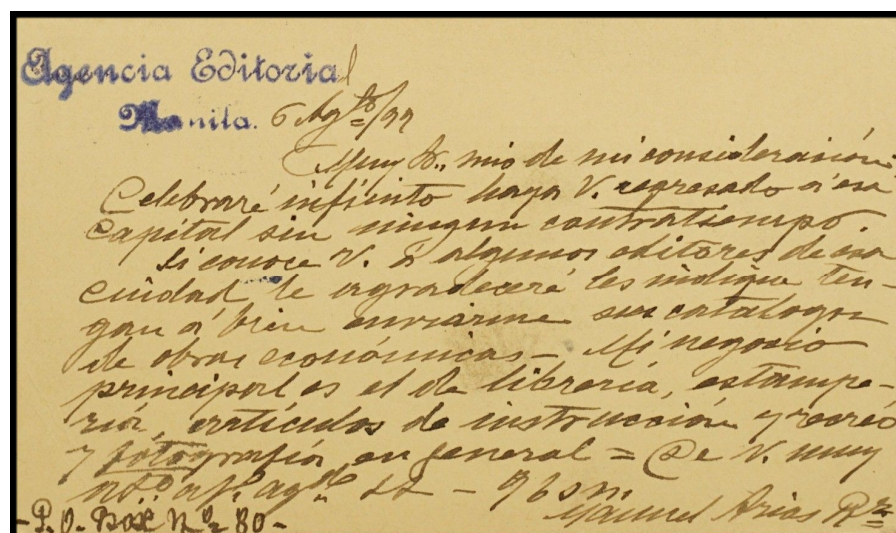 Agencia Editorial
Manila. 6 Agto/99
Muy Sr. mio de mi consideración:
Celebraré infinito haya V. regresado á esa
Capital sin ningun contratiempo.
Si conoce V. á algunos editores de esa
ciudad, le agradeceré les indique ten-
gan á bien enviarme sus catalogos
de obras económicas - Mi negocio
principal es el de libreria, estampe-
ria, articulos de instrucción y recreo
y fotografia en general = De V. muy
Manuel Arias Rz
- P. O. Box Nº 80 -